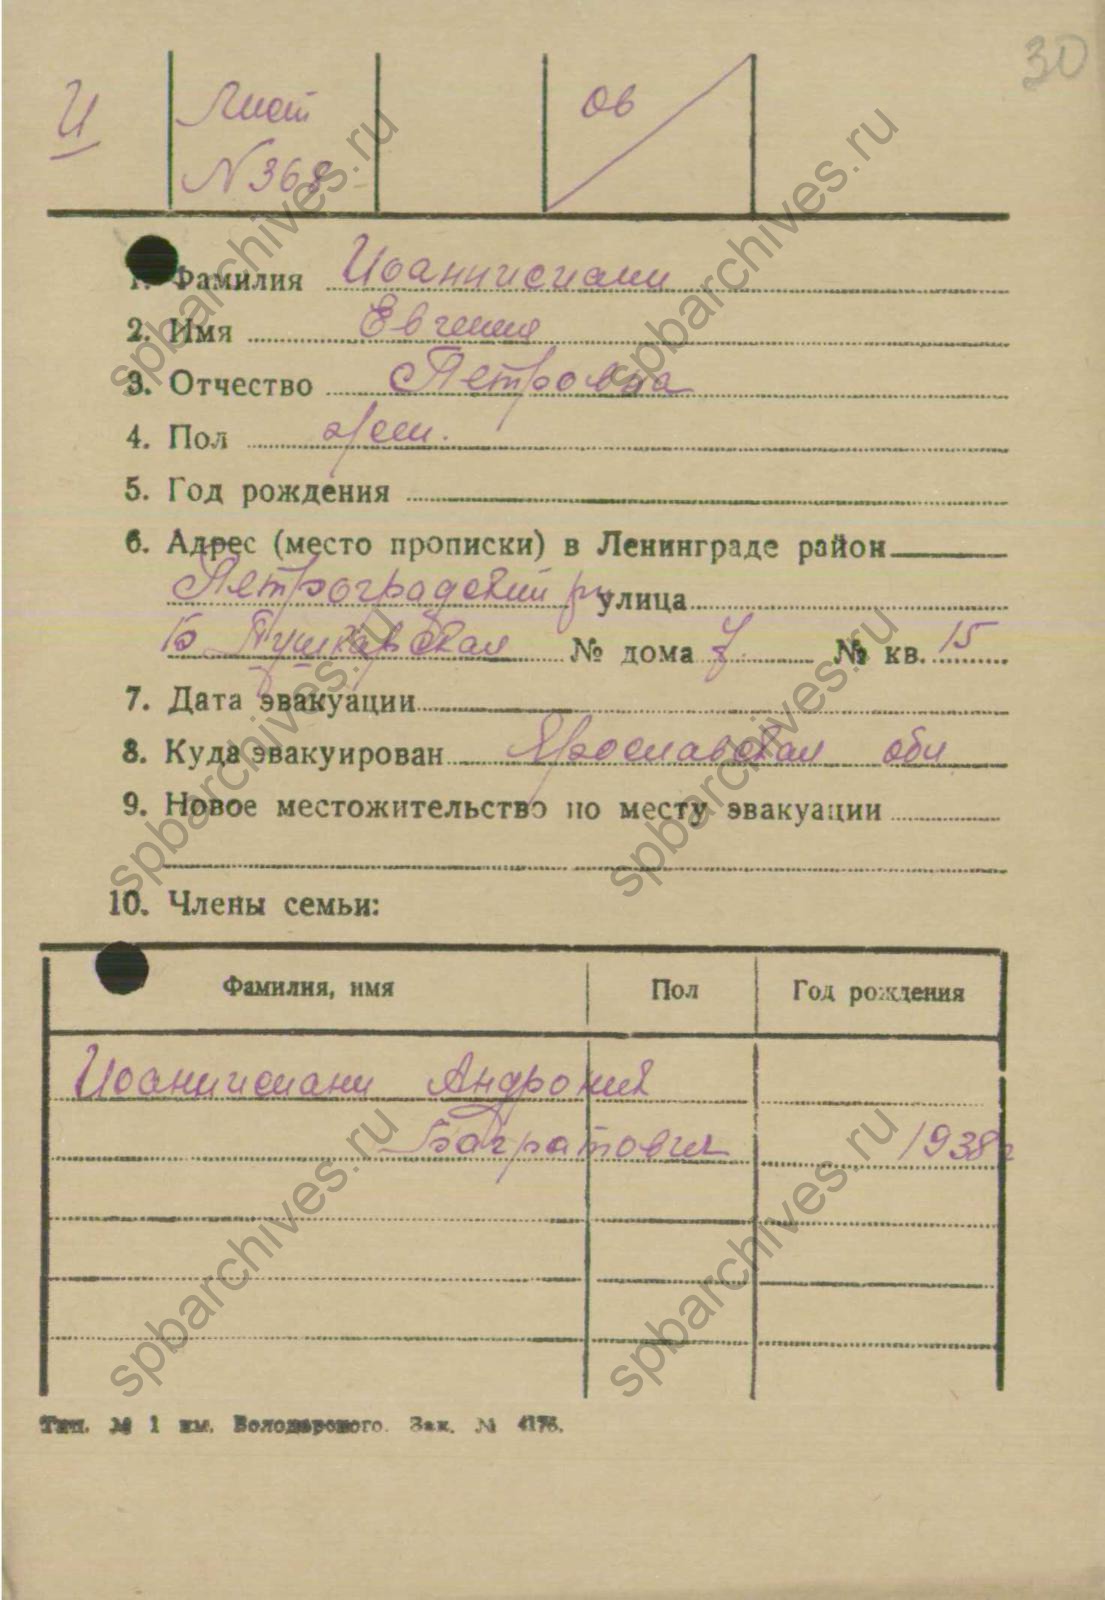 30
И Лист Ов
N 368
1. Фамилия Иоаннисиани
2. Имя Евгения
3. Отчество Петровна
4. Пол жен.
5. Год рождения
6. Адрес (место прописки) в Ленинграде район
Петроградский р улица
Б Пушкарская № дома 7 № кв. 15
7. Дата эвакуации
8. Куда эвакуирован Ярославская обл
9. Новое местожительство по месту эвакуации
10. Члены семьи:
Фамилия, имя Пол Год рождения
Иоанисиани Андроник
Багратович 1938г
Тип. № 1 им. Володарского. Зак. № 4176.
spbarchives.ru
spbarchives.ru
spbarchives.ru
spbarchives.ru
spbarchives.ru
spbarchives.ru